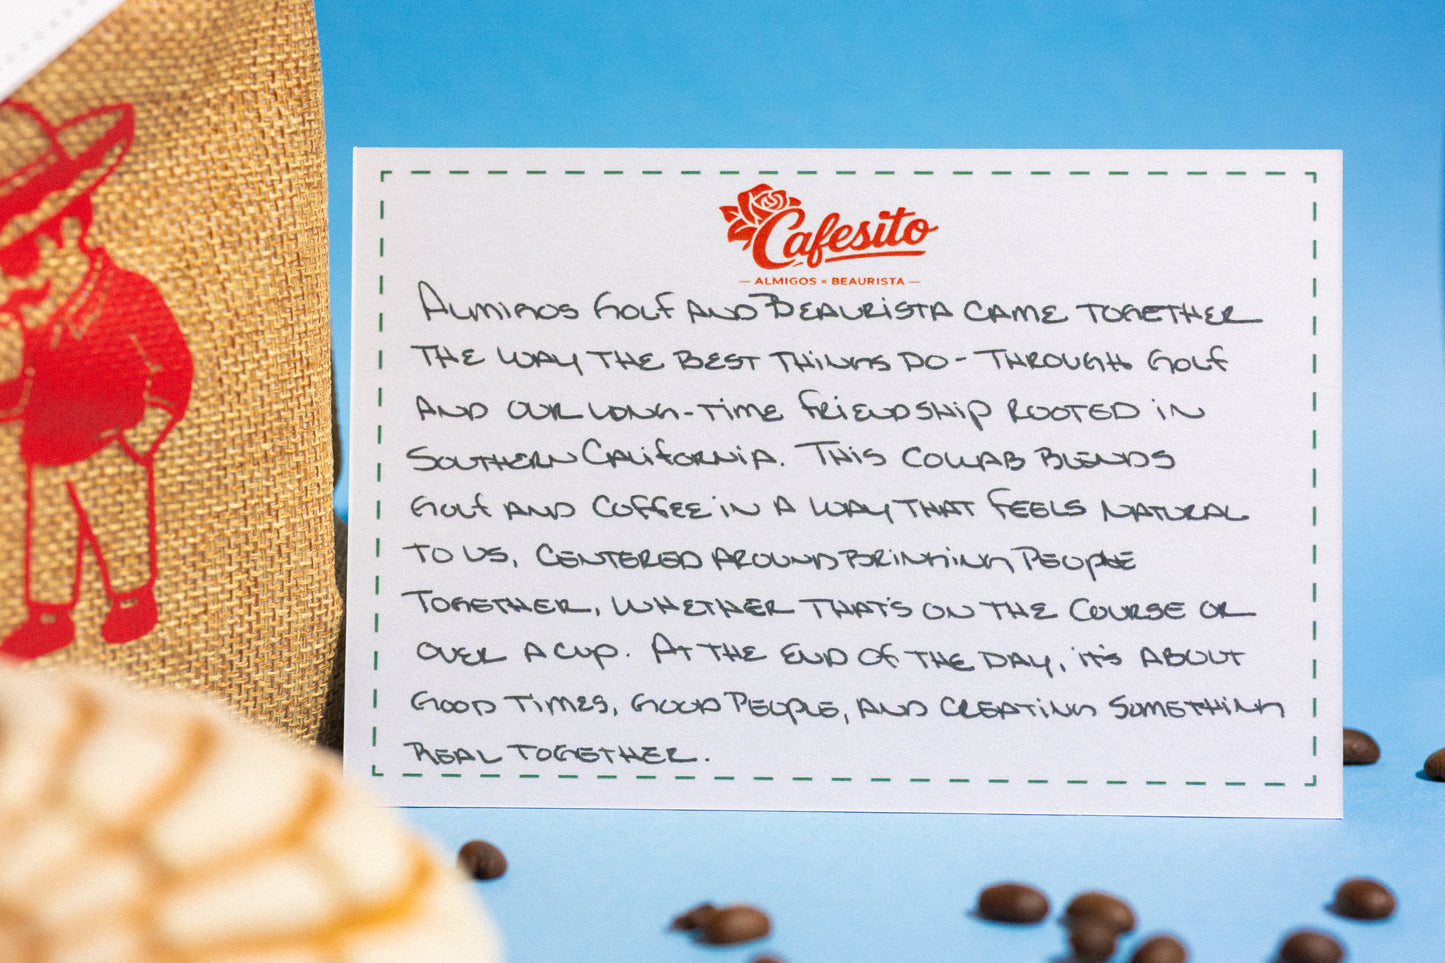 Cafesito
— ALMIGOS × BEAURISTA —
ALMIGOS GOLF AND BEAURISTA CAME TOGETHER
THE WAY THE BEST THINGS DO - THROUGH GOLF
AND OUR LONG-TIME FRIENDSHIP ROOTED IN
SOUTHERN CALIFORNIA. THIS COLLAB BLENDS
GOLF AND COFFEE IN A WAY THAT FEELS NATURAL
TO US, CENTERED AROUND BRINGING PEOPLE
TOGETHER, WHETHER THAT'S ON THE COURSE OR
OVER A CUP. AT THE END OF THE DAY, IT'S ABOUT
GOOD TIMES, GOOD PEOPLE, AND CREATING SOMETHING
REAL TOGETHER.